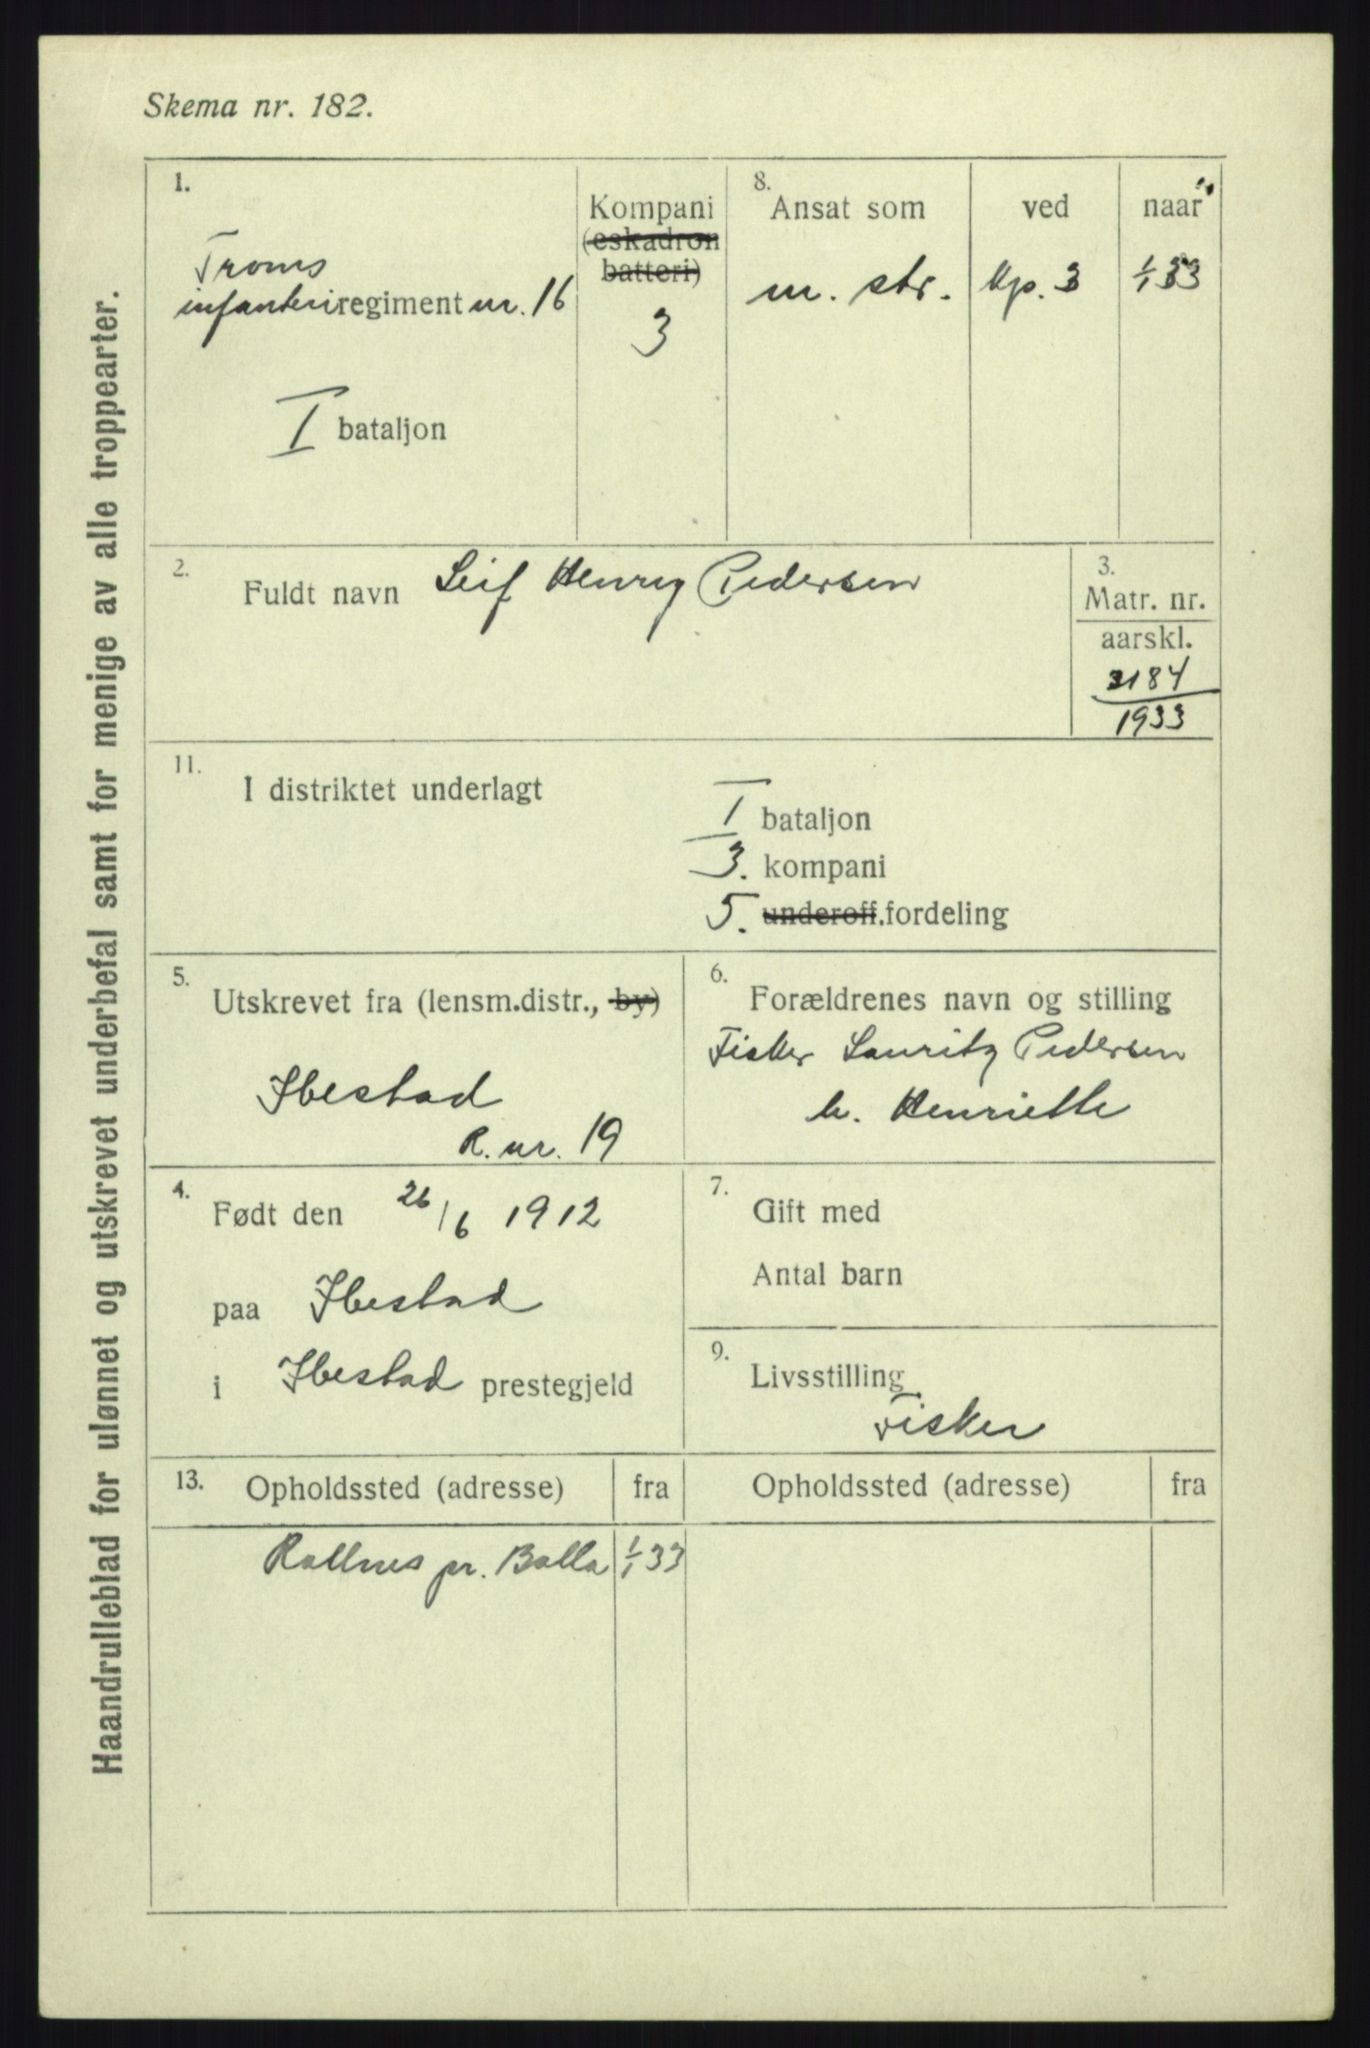 Skema nr. 182.
Haandrulleblad for ulønnet og utskrevet underbefal samt for menige av alle troppearter.
1.
Troms
infanteriregiment nr. 16
I bataljon
Kompani
(eskadron
batteri)
3
8.
Ansat som
ved
naar
m. str.
kp. 3
1/1 33
2.
Fuldt navn Leif Henry Pedersen
3.
Matr. nr.
aarskl.
3184
1933
11.
I distriktet underlagt
I bataljon
3. kompani
5. underoff.fordeling
5.
Utskrevet fra (lensm.distr., by)
Ibestad
R. nr. 19
6.
Forældrenes navn og stilling
Fisker Lauritz Pedersen
h. Henriette
4.
Født den 26/6 1912
paa Ibestad
i Ibestad prestegjeld
7.
Gift med
Antal barn
9.
Livsstilling
Fisker
13.
Opholdssted (adresse)
fra
Opholdssted (adresse)
fra
Rollnes pr. Bolla 1/1 33